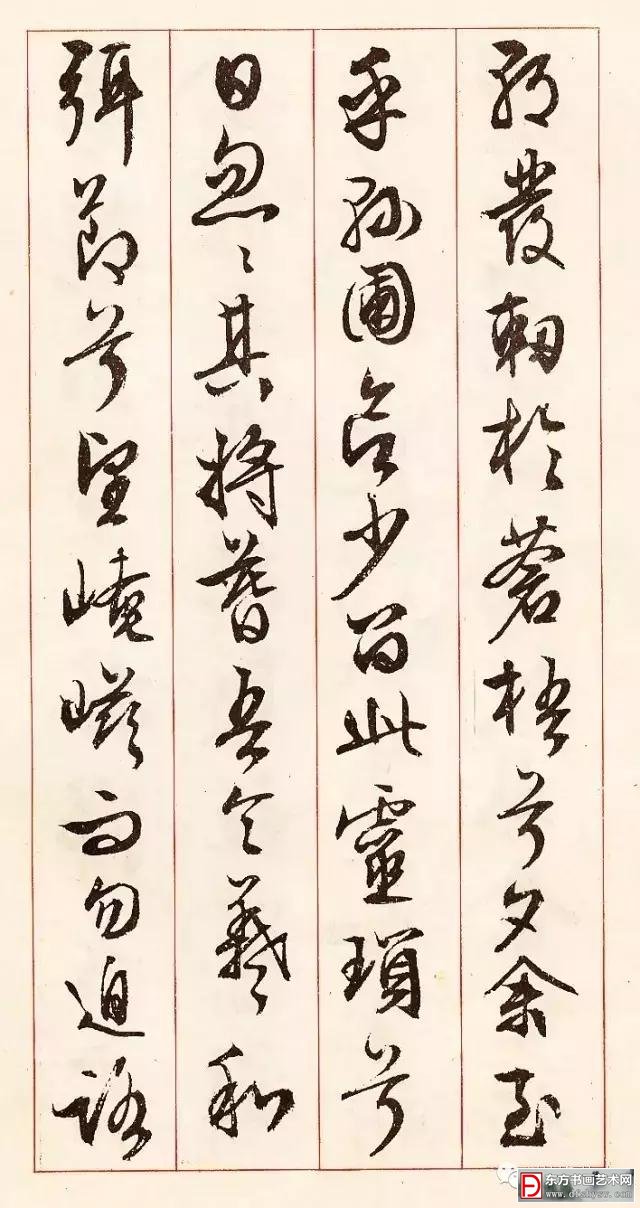 朝發軔於蒼梧兮夕余至
乎縣圃欲少留此靈瑣兮
日忽〻其將暮吾令羲和
弭節兮望崦嵫而勿迫路
东方书画艺术网